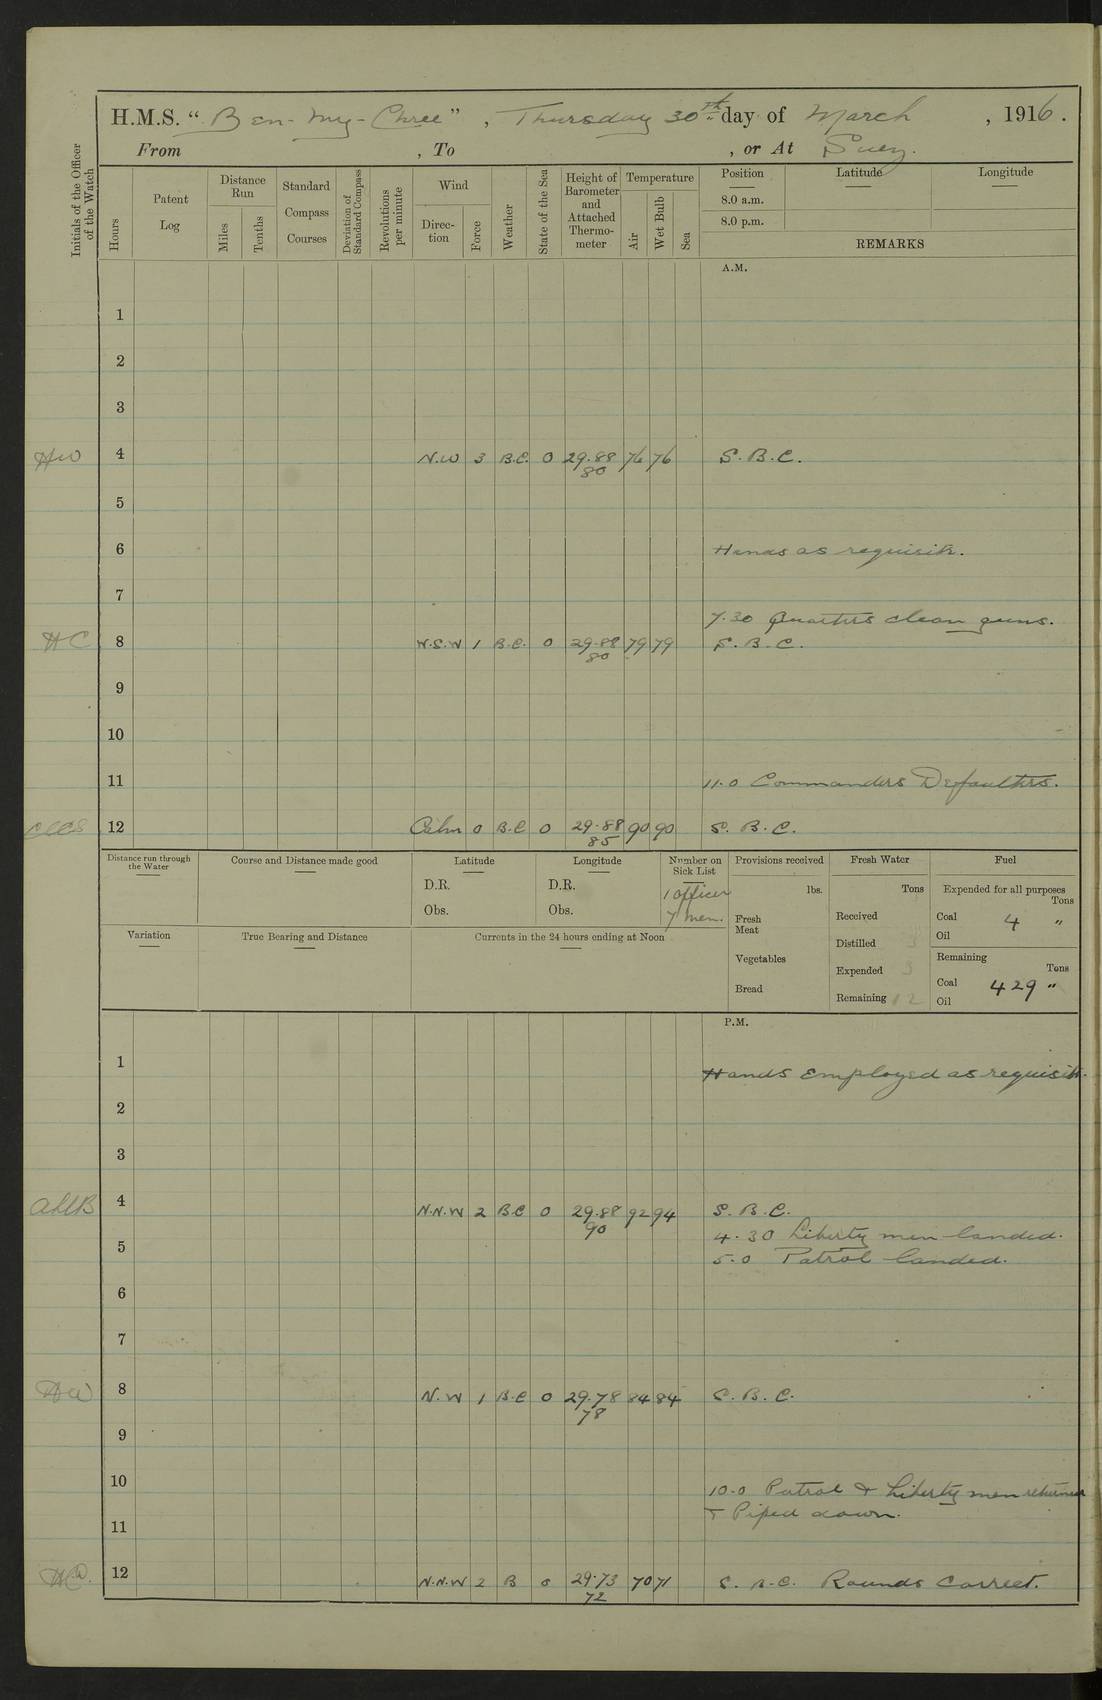 H.M.S. "Ben-my-Chree", Thursday 30th day of March, 1916.
From , To , or At Suez.
Initials of the Officer of the Watch
Hours
Patent Log
Distance Run
Miles
Tenths
Standard Compass Courses
Deviation of Standard Compass
Revolutions per minute
Wind
Direction
Force
Weather
State of the Sea
Height of Barometer and Attached Thermometer
Temperature
Air
Wet Bulb
Sea
Position
Latitude
Longitude
8.0 a.m.
8.0 p.m.
REMARKS
A.M.
1
2
3
HW 4 N.W 3 B.C. 0 29.88 76 76 S.B.C.
80
5
6 Hands as requisite.
7
7.30 Quarters clean guns.
HC 8 W.S.W 1 B.C. 0 29.88 79 79 S.B.C.
80
9
10
11 11.0 Commanders Defaulters.
12 Calm 0 B.C 0 29.88 90 90 S.B.C.
85
Distance run through the Water
Course and Distance made good
Latitude
D.R.
Obs.
Longitude
D.R.
Obs.
Number on Sick List
1 officer
7 men.
Provisions received
lbs.
Fresh Meat
Vegetables
Bread
Fresh Water
Tons
Received
Distilled 3
Expended 3
Remaining 12
Fuel
Expended for all purposes
Tons
Coal 4 "
Oil
Remaining
Tons
Coal 429 "
Oil
Variation
True Bearing and Distance
Currents in the 24 hours ending at Noon
P.M.
1 Hands employed as requisite.
2
3
4 N.N.W 2 B.C 0 29.88 92 94 S.B.C.
90
4.30 Liberty men landed.
5 5.0 Patrol landed.
6
7
HW 8 N.W 1 B.C 0 29.78 84 84 S.B.C.
78
9
10 10.0 Patrol & Liberty men returned
11 & Piped down.
12 N.N.W 2 B 0 29.73 70 71 S.B.C. Rounds Correct.
72